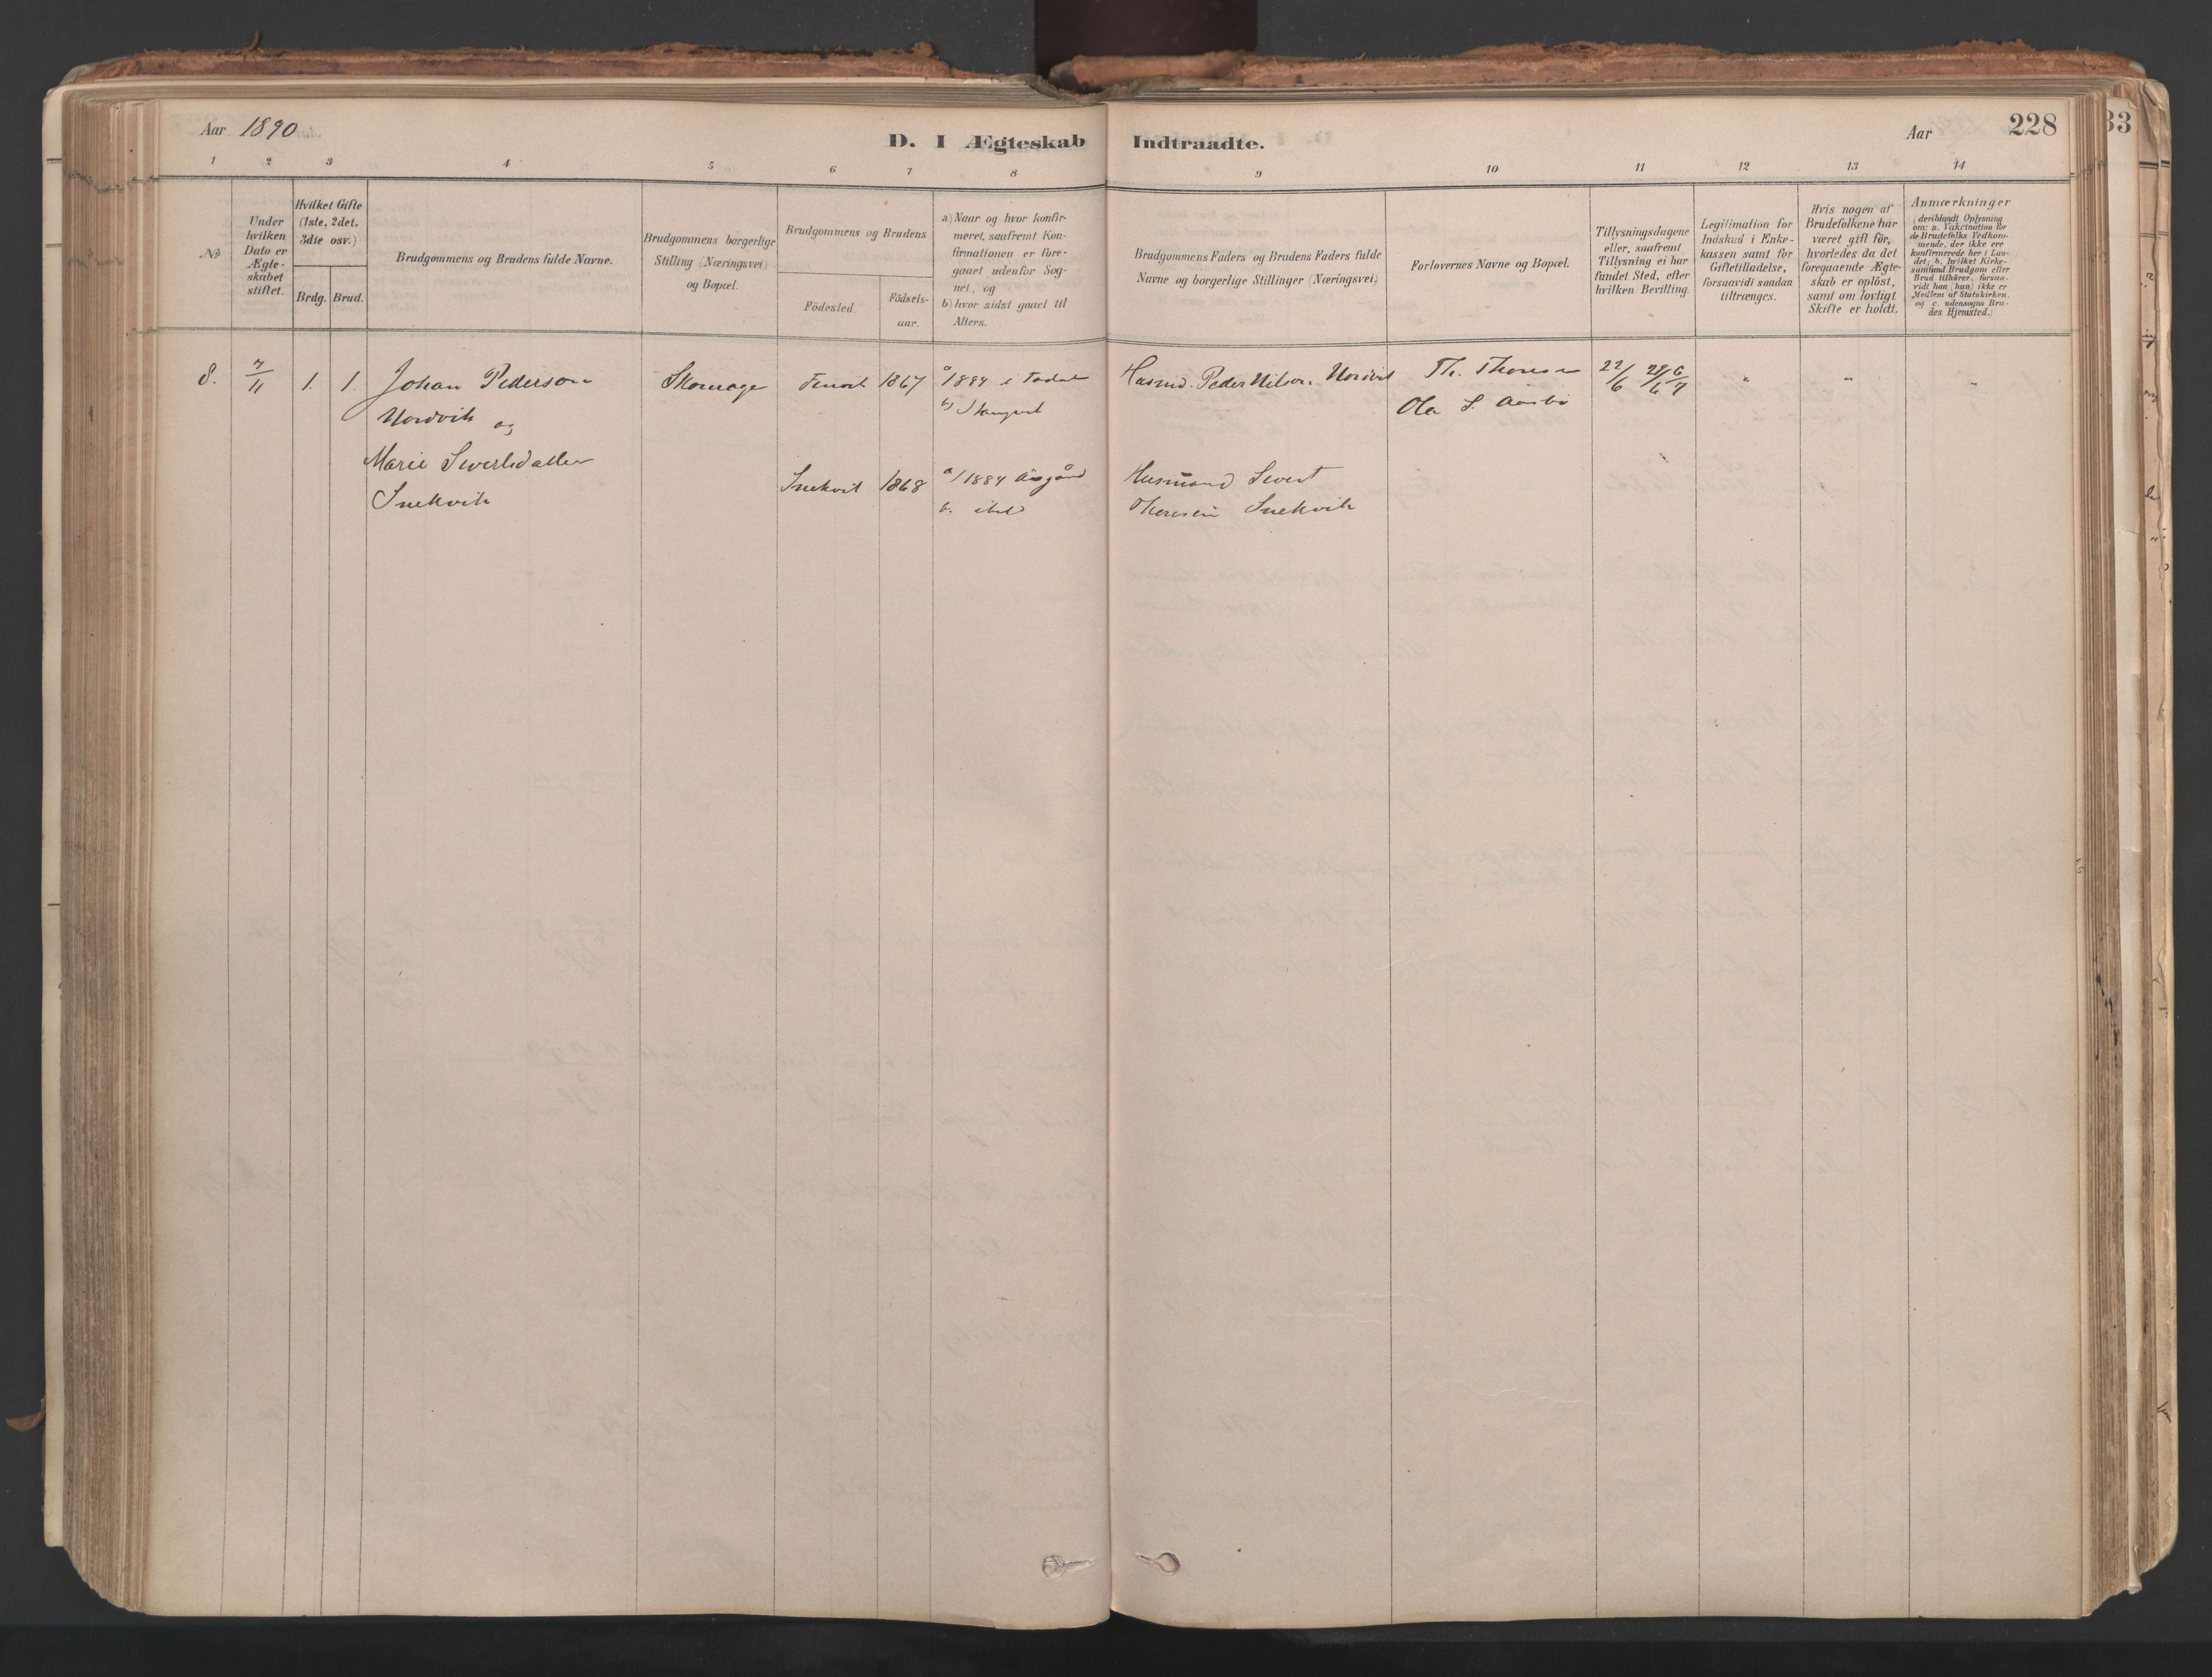 Aar 1890
D. I Ægteskab Indtraadte.
Aar 228
33
1 2 3 4 5 6 7 8 9 10 11 12 13 14
No
Under hvilken Dato er Ægteskabet stiftet.
Hvilket Gifte (1ste, 2det, 3die osv.)
Brdg. Brud.
Brudgommens og Brudens fulde Navne.
Brudgommens borgerlige Stilling (Næringsvei) og Bopæl.
Brudgommens og Brudens
Födested.
Födsels-aar.
a) Naar og hvor konfir-
meret, saafremt Kon-
firmationen er fore-
gaaet udenfor Sog-
net, og
b) hvor sidst gaaet til
Alters.
Brudgommens Faders og Brudens Faders fulde
Navne og borgerlige Stillinger (Næringsvei)
Forlovernes Navne og Bopæl.
Tillysningsdagene
eller, saafremt
Tillysning ei har
fundet Sted, efter
hvilken Bevilling.
Legitimation for
Indskud i Enke-
kassen samt for
Giftetilladelse,
forsaavidt saadan
tiltrænges.
Hvis nogen af
Brudefolkene har
været gift för,
hvorledes da det
foregaaende Ægte-
skab er oplöst,
samt om lovligt
Skifte er holdt.
Anmærkninger
(deriblandt Oplysning
om: a. Vakcination for
de Brudefolks Vedkom-
mende, der ikke ere
konfirmerede her i Lan-
det; b. hvilket Kirke-
samfund Brudgom eller
Brud tilhører, forsaa-
vidt han (hun) ikke er
Medlem af Statskirken,
og c. udensogns Bru-
des Hjemsted.)
8. 7/11 1. 1. Johan Pederson Skomage 1867 a 1884 i Husmd. Peder Nilsen Nordvik Th. Thoresen 22/6 29/6 6/7 " " "
Nordvik og b) Ola S.
Marie Sivertsdatter
Snekvik Snekvik 1868 a) 1884 Åsgård Husmand Sivert
b. ibid Snekvik